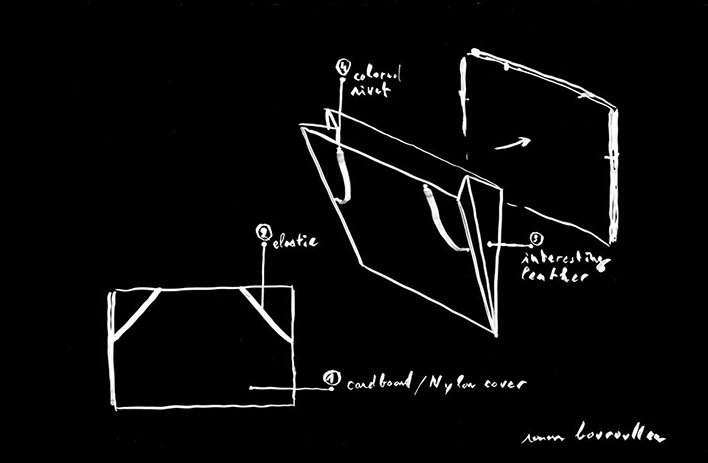 4 colored
rivet
2 elastic
3
interesting
leather
1 cardboard/Nylon cover
ronan bouroullec